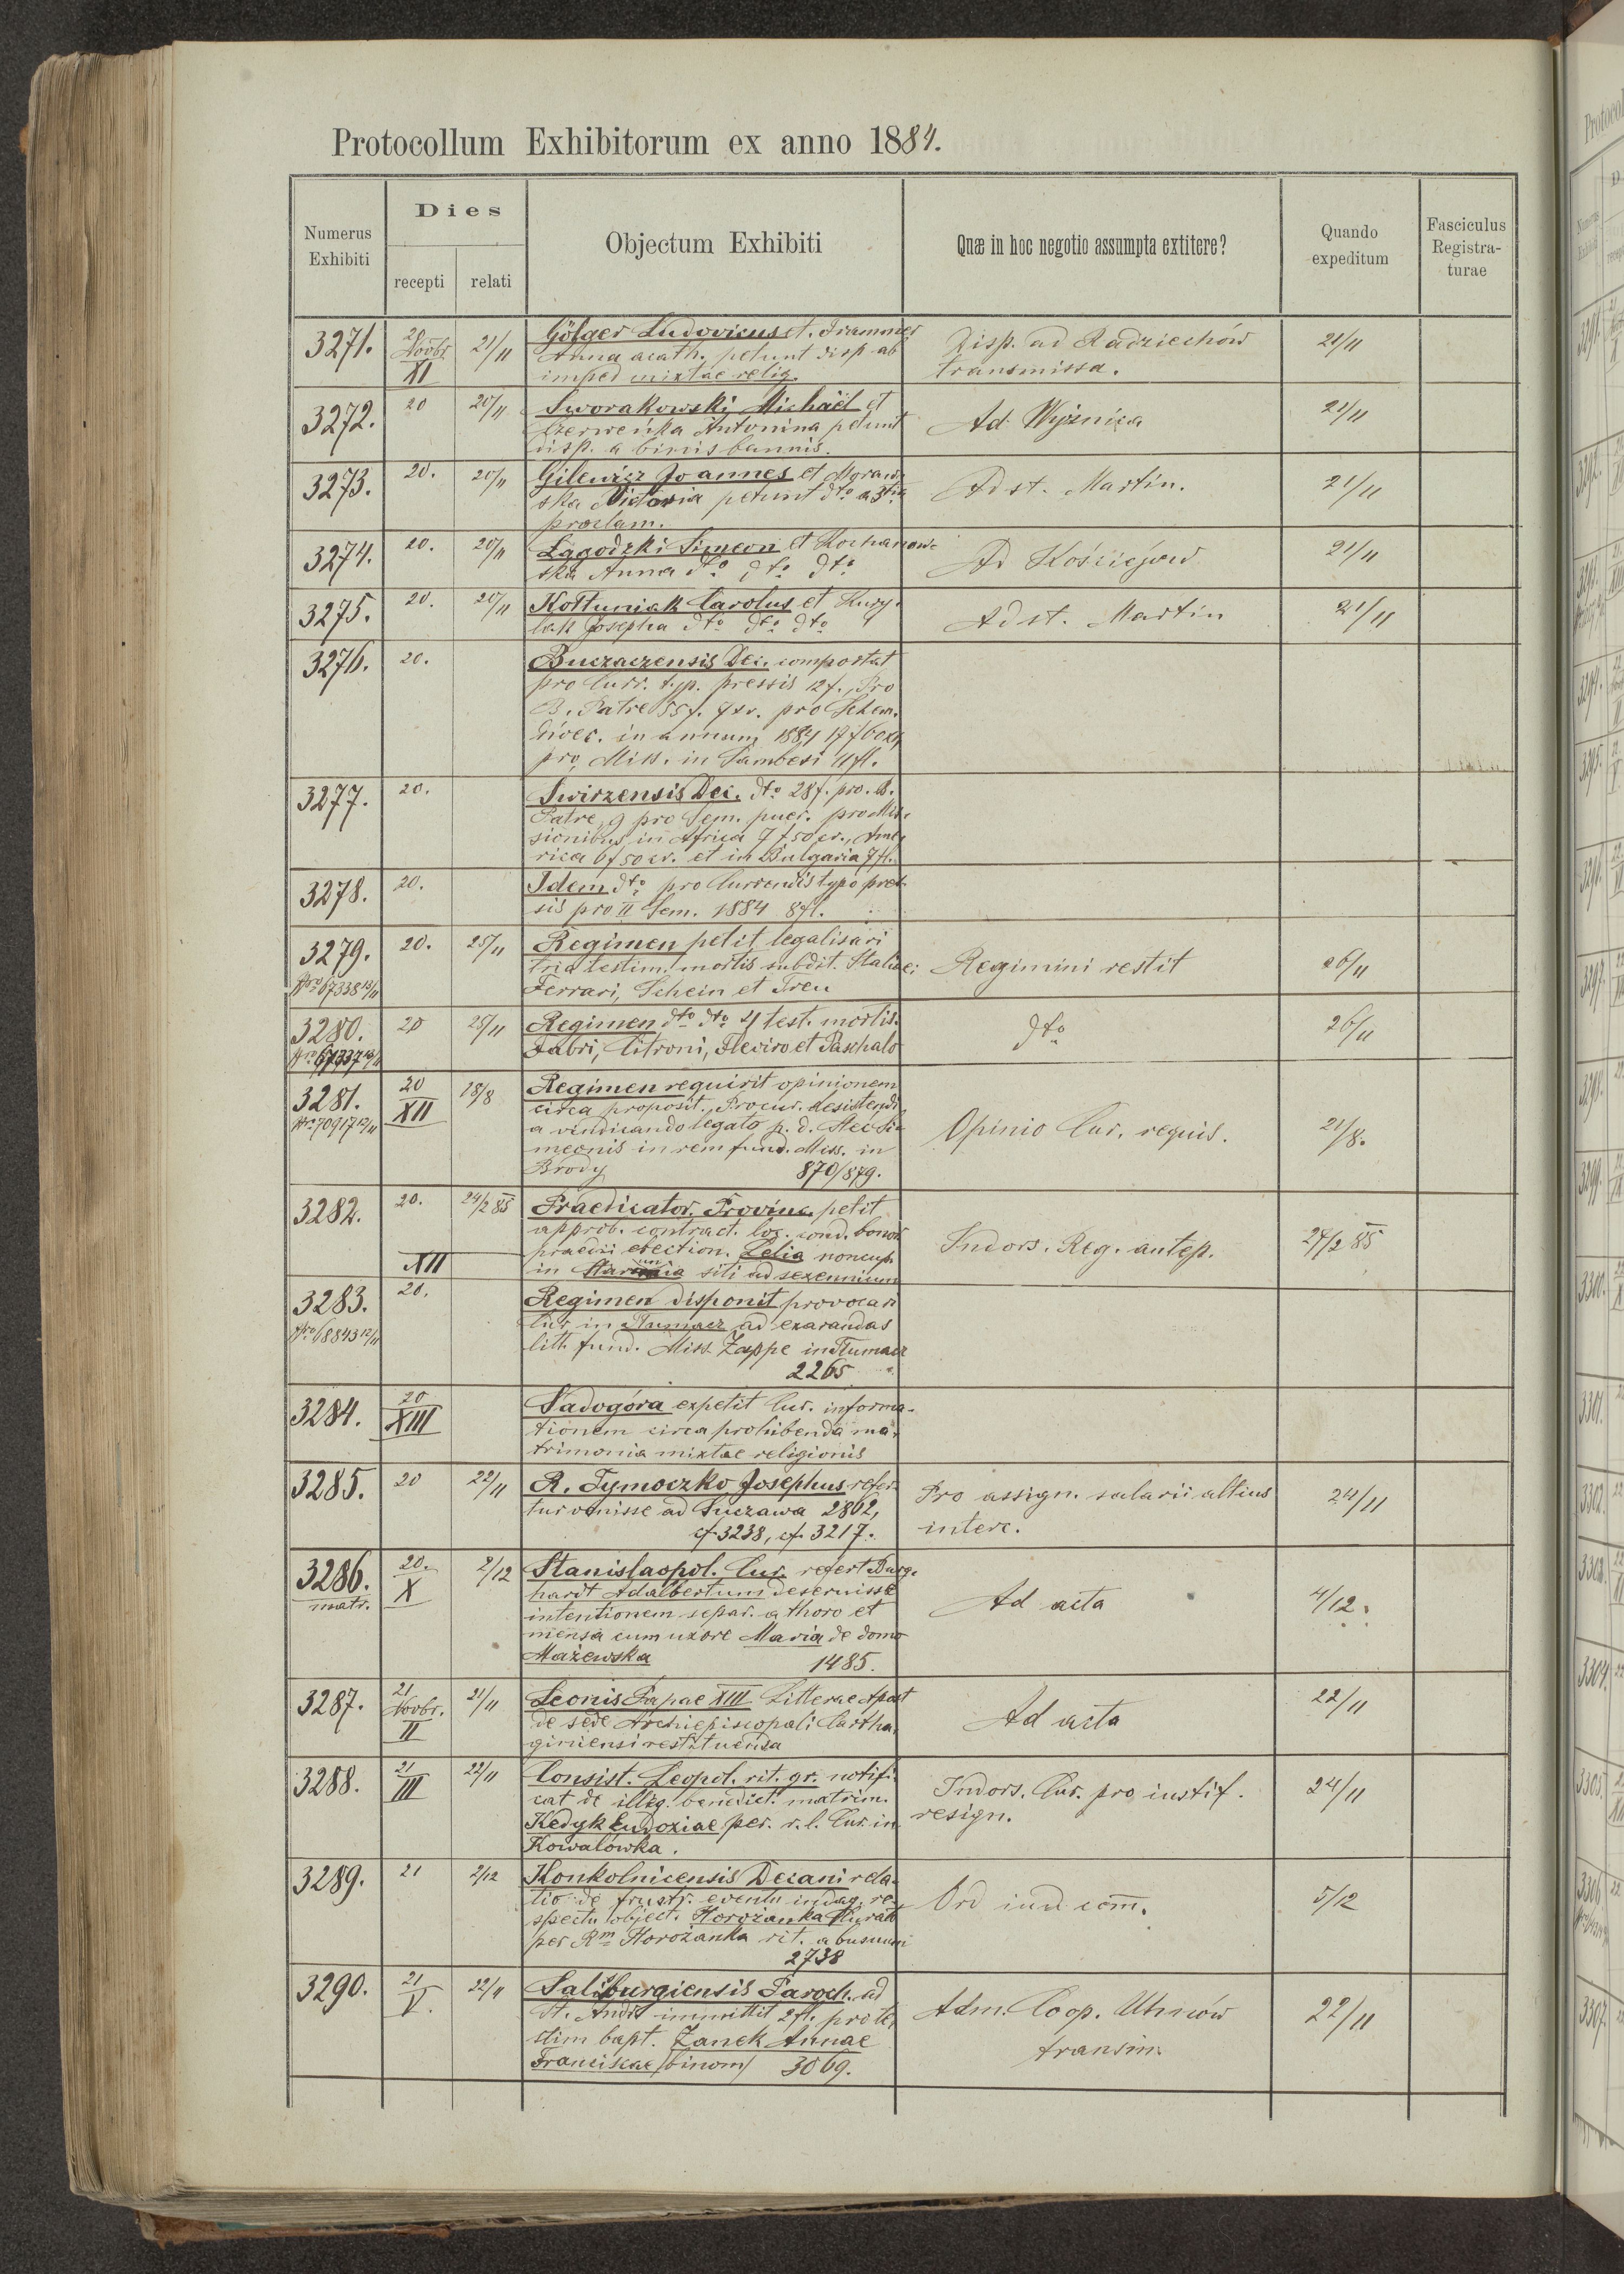 Protocollum Exhibitorum ex anno 1884.
Numerus Exhibiti
Dies
recepti
relati
Objectum Exhibiti
Quæ in hoc negotio assumpta extitere?
Quando expeditum
Fasciculus Registra-
turae
3271.
20
Novbr.
XI
21/11
Gölger Ludovicus et. Frammer
Anna acath. petunt disp ab
imped mixtae relig.
Disp. ad Radziechów
transmissa.
21/11
3272.
20
20/11
Sworakowski Michaël et
Czerweńka Antonina petunt
disp. a binis bannis.
Ad Wyżnica
21/11
3273.
20.
20/11
Gilewicz Joannes et Moraw
ska Victoria petunt dto a 3tia
proclam.
Ad st. Martin.
21/11
3274.
20.
20/11
Łagodzki Simeon et Kochanow-
ska Anna dto dto dto
Ad Kościejow
21/11
3275.
20.
20/11
Kołtuniak Carolus et Kury-
lak Josepha dto dto dto
Ad st. Martin
21/11
3276.
20.
Buczaczensis Dec. comportat
pro Curr. typ. pressis 12 f., Pro
B. Patre 55 f. 7 xr. pro Schem.
dioec. in annum 1884 17 f 60 xr
pro Miss. in Sambesi 11 fl.
3277.
20.
Swirzensis Dec. dto 28 f. pro. B.
Patre, 9 pro Sem. puer. pro Mis-
sionibus in Africa 7 f 50 xr., Ame-
rica 6 f 50 xr. et in Bulgaria 7 fl.
3278.
20.
Idem dto pro Currendis typo pres-
sis pro II Sem. 1884 8 fl.
3279.
Nro 67338 13/11
20.
25/11
Regimen petit legalisari
tria testim. mortis subdit. Italiae:
Ferrari, Schein et Treu
Regimini restit
26/11
3280.
Nro 67337 13/11
20
25/11
Regimen dto dto 4 test. mortis.
Fabri, Citroni, Fleciro et Paschalo
dto
26/11
3281.
Nro 70917 12/11
20
XII
18/8
Regimen requirit opinionem
circa proposit. Procur. desistendi
a vindicando legato p. d. Stec Si-
meonis in rem fund. Miss. in
Brody 870/879.
Opinio Cur. requis.
21/8.
3282.
20.
XII
24/2 85
Praedicator. Provinc. petit
approb. contract. loc. cond. bonor
praedii erection. Zelia noncup.
in siti ad sexennium
Indors. Reg. antep.
27/2 85
3283.
Nro 68843 12/11
20.
Regimen disponit provocari
Cur in Tłumacz ad exarandas
litt. fund. Miss Zappe in Tłumacz
2265
3284.
20
XIII
Sadogóra expetit Cur. informa-
tionem circa prohibenda ma-
trimonia mixtae religionis
3285.
20
22/11
R. Tymoczko Josephus refer-
tur venisse ad Suczawa 2862,
cf 3238, cf 3217.
Pro assign. salarii altius
interc.
24/11
3286.
matr.
20.
X
2/12
Stanislaopol. Cur. refert Burg-
hardt Adalbertum deseruisse
intentionem separ. a thoro et
mensa cum uxore Maria de domo
Mażewska 1485.
Ad acta
4/12.
3287.
21
Novbr.
II
21/11
Leonis Papae XIII Litterae Apost
de sede Archiepiscopali Cartha-
giniensi restituenda
Ad acta
22/11
3288.
21
III
22/11
Consist. Leopol. rit. gr. notifi-
cat de illeg. benedict. matrim.
Kedyk Eudoxiae per. r. l. Cur. in
Kowalówka.
Indors. Cur. pro iustif.
resign.
24/11
3289.
21
2/12
Konkolnicensis Decani rela-
tio de frustr. eventu indag. re-
spectu object. Horożanka Kurat
per Rm Horożanka rit. abusuum
2738
Ord iud com.
5/12
3290.
21
V.
22/11
Salisburgiensis Paroch. ad
St. Andr immittit 2 fl. pro te-
stim bapt. Zanek Annae
Franciscae /binom/ 3069.
Adm. Coop. Uhnów
transm.
22/11